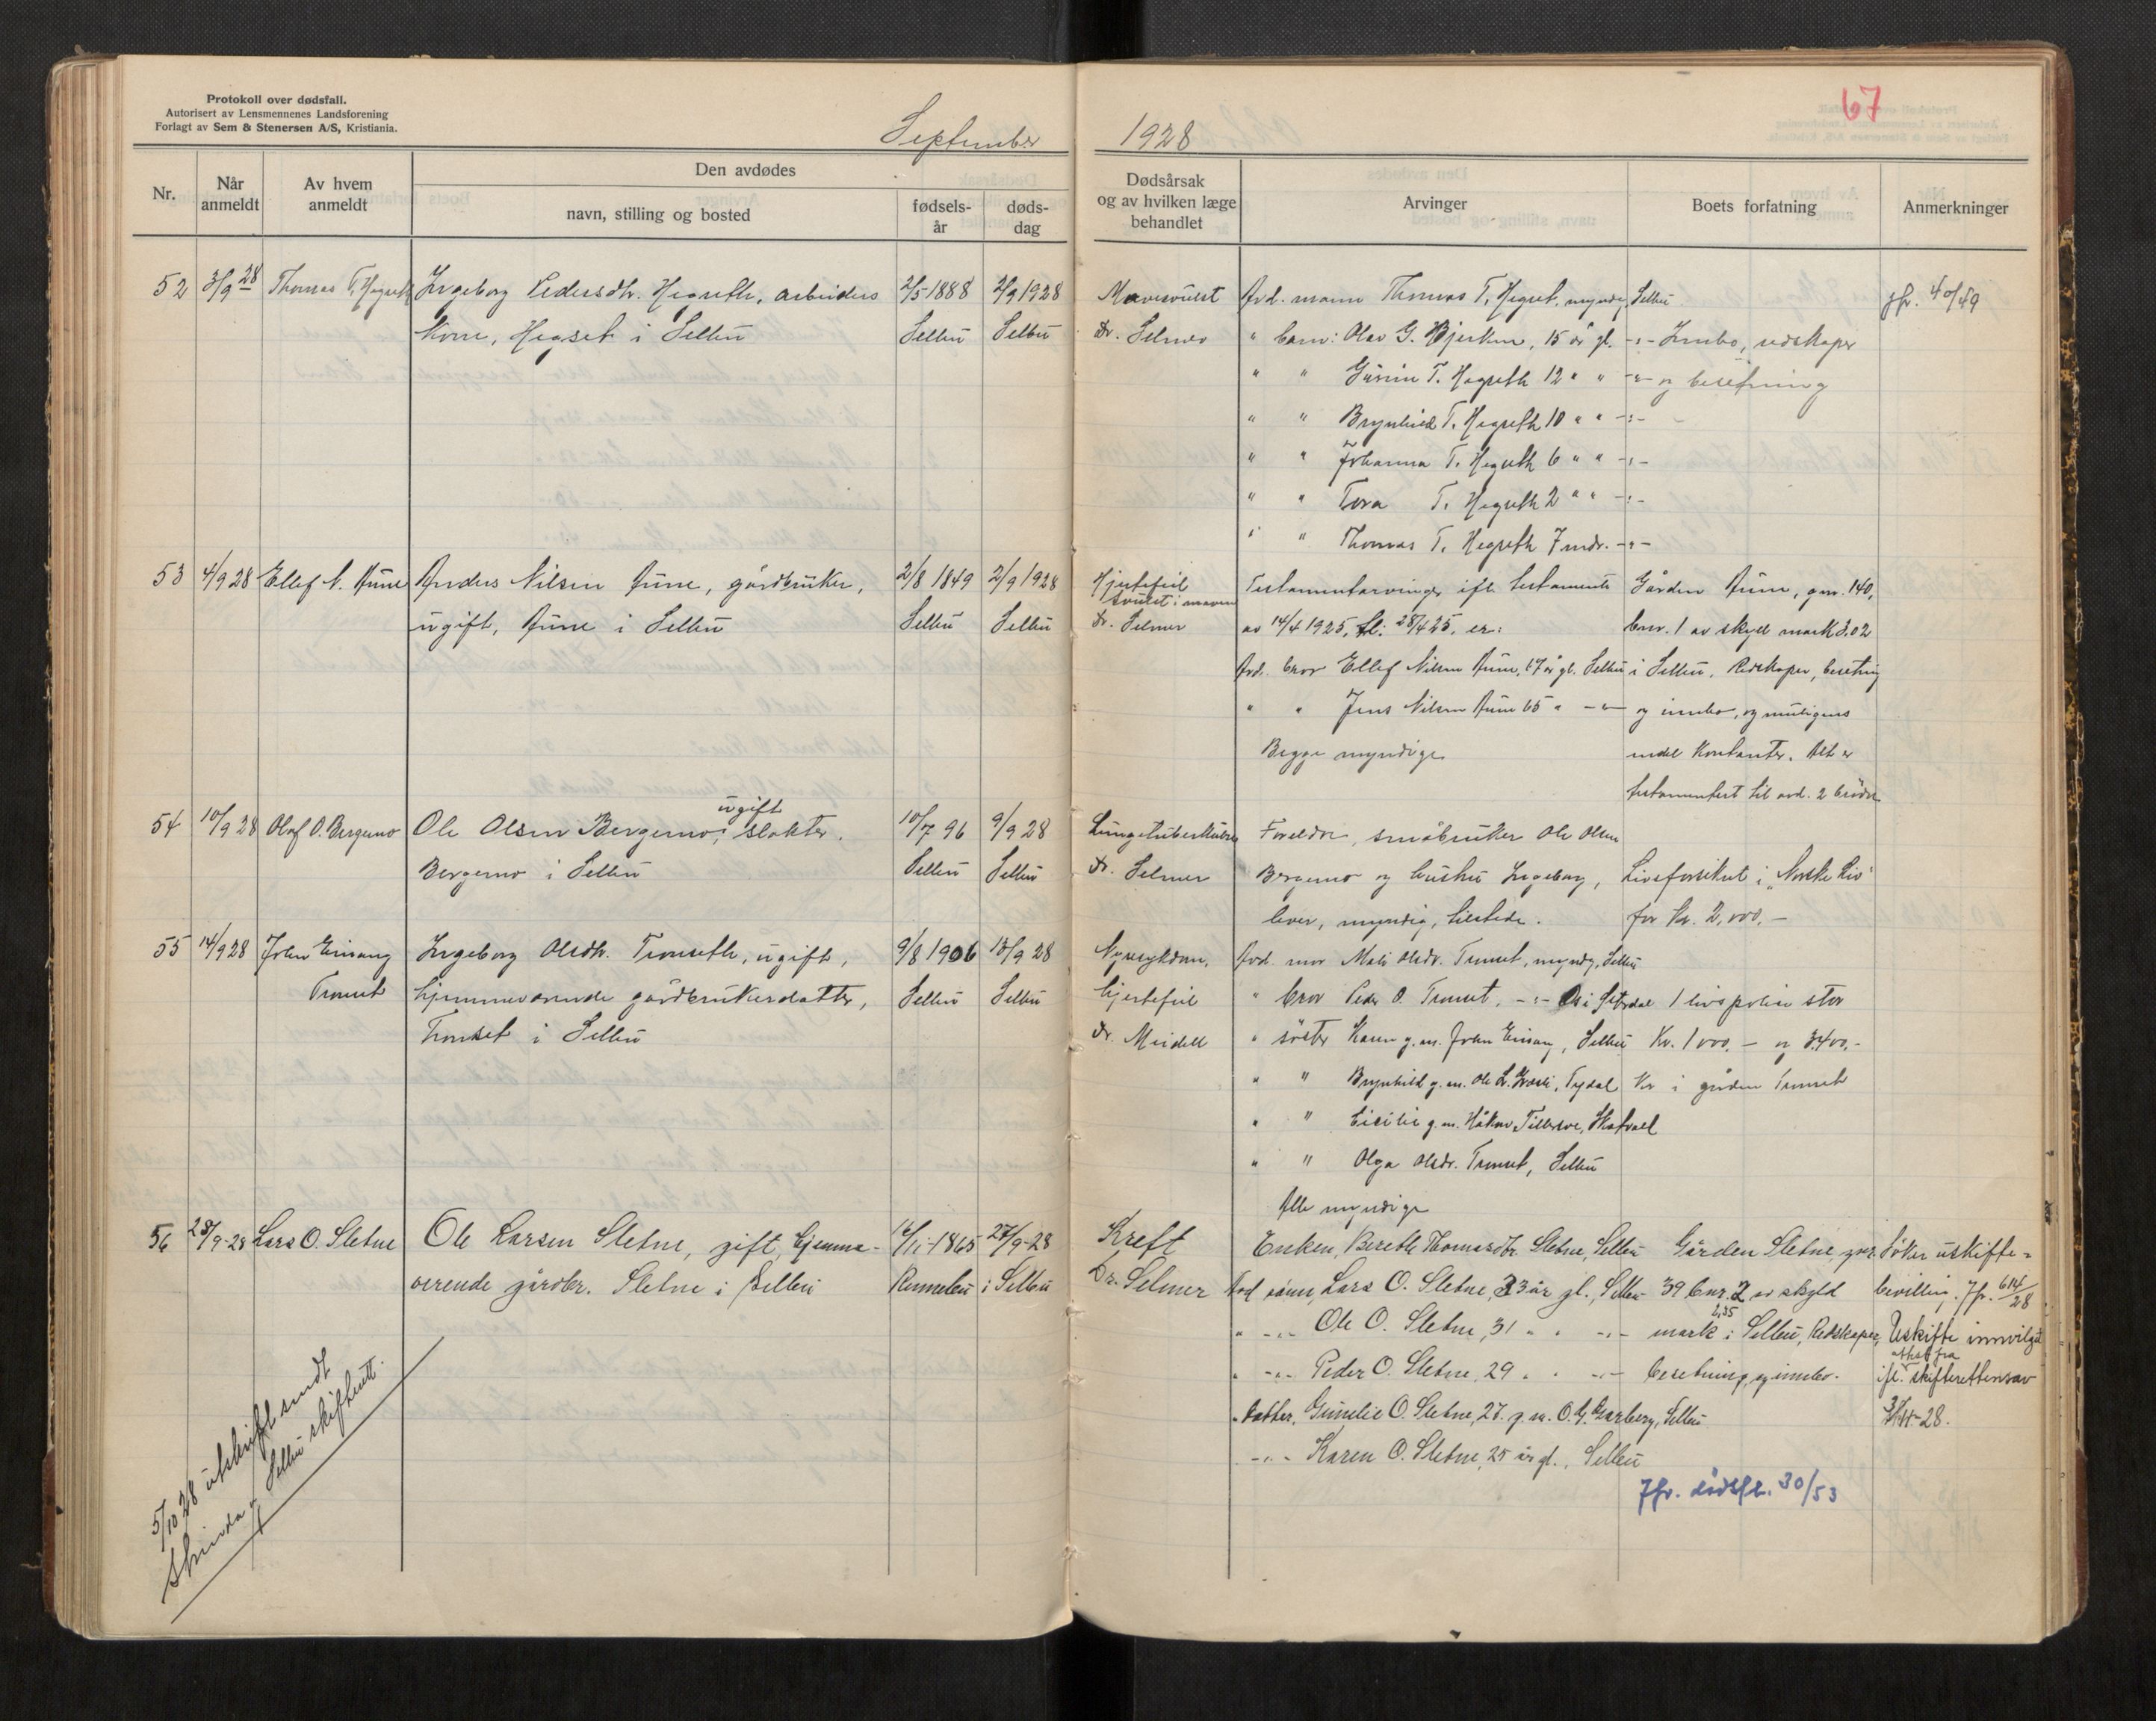 Protokoll over dødsfall.
Autorisert av Lensmennenes Landsforening
Forlagt av Sem & Stenersen A/S, Kristiania.
September 1928
67
Nr.
Når anmeldt
Av hvem anmeldt
Den avdødes
navn, stilling og bosted
fødsels-år
døds-dag
Dødsårsak og av hvilken læge behandlet
Arvinger
Boets forfatning
Anmerkninger
52 3/9 28 Thomas T. Hegseth Ingeborg Pedersdtr. Hegseth, arbeiders 2/5 1888 2/9 1928 Mavesvulst Avd. mann Thomas T. Hegset, myndig, Selbu jfr. 40/49
kone, Hegset i Selbu Selbu Selbu Dr. Selmer " barn: Olav G. Bjerken, 15 år gl. -"- Innbo, redskaper
" " T. Hegseth 12 " " -"- og besetning
" " Brynhild T. Hegseth 10 " " -"-
" " Johanna T. Hegseth 6 " " -"-
" " Tora T. Hegseth 2 " " -"-
" " Thomas T. Hegseth 7 mdr. -"-
53 4/9 28 Ellef N. Aune Anders Nilsen Aune, gårdbruker, 2/8 1849 2/9 1928 Hjertefeil Testamentarvinger ifl. testamente Gården Aune, gnr. 140,
svulst i maven
ugift, Aune i Selbu Selbu Selbu Dr. Selmer av 14/4 1925, tl. 28/4 25, er: bnr. 1 av skyld mark 3.02
Avd. bror Ellef Nilsen Aune, 67 år gl. Selbu i Selbu. Redskaper, besetning
" " Jens Nilsen Aune 65 " -"- og innbo, og muligens
Begge myndige endel kontanter. Alt er
testamentert til avd. 2 brødre
54 10/9 28 Olaf O. Bergemo Ole Olsen Bergemo, ugift slakter. 10/7 96 9/9 28 Lungetuberkulose Foreldre, småbruker Ole Olsen
Bergemo i Selbu Selbu Selbu Dr. Selmer Bergemo og hustru Ingeborg, Livsforsikret i "Norske Liv"
lever, myndig, tilstede. for kr. 2,000.-
55 14/9 28 John Evivang Ingeborg Olsdtr. Tronseth, ugift, 9/8 1906 13/9 28 Nyresykdom, Avd. mor Mali Olsdr. Tronset, myndig, Selbu
Tronset hjemmeværende gårdbrukerdatter, Selbu Selbu hjertefeil " bror Peder O. Tronset, -"- 1 livspolise stor
Tronset i Selbu Dr. Meidell " søster Karen g.m. John Evivang, Selbu Kr. 1000.- og 3400.-
" " Brynhild g.m. Ole L. Græsli, Tydal kr i gården Tronset
" " Cicilie g.m. Håkon Tillerove, Skatval
" " Olga Olsdr. Tronset, Selbu
Alle myndige
56 28/9-28 Lars O. Sletne Ole Larsen Sletne, gift, hjemme- 16/11-1865 27/9-28 Kreft Enken, Berethe Thomasdtr. Sletne, Selbu Gården Sletne, gnr. Søker uskifte-
verende gårdbr. Sletne i Selbu Rennebu i Selbu Dr. Selmer Avd sønn, Lars O. Sletne, 33 år gl., Selbu 39 bnr. 2 av skyld bevilling. Jfr. 614/28
" -"- Ole O. Sletne, 31 " " -"- mark 2,35 i Selbu, Redskaper, Uskifte innvilget
" -"- Peder O. Sletne, 29 " " -"- besetning, og innbo. ifl. attest fra skifteretten av
" datter, Gunelie O. Sletne, 27 g.m. O. G. Garberg, Selbu -28.
-"- Karen O. Sletne, 25 år gl., Selbu
Jfr. dødsfl. 30/53
5/10 28 utskrift sendt
Strinda og Selbu skifterett.